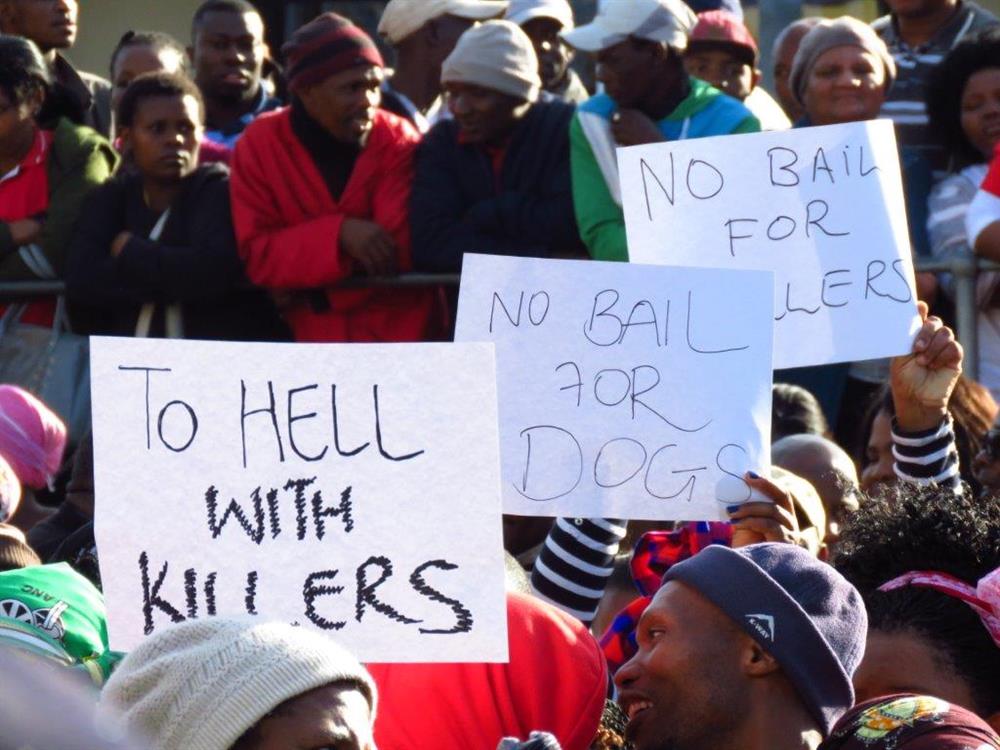 NO BAIL
FOR
LLERS
NO BAIL
FOR
DOGS
TO HELL
WITH
KILLERS
ANC
K-WAY